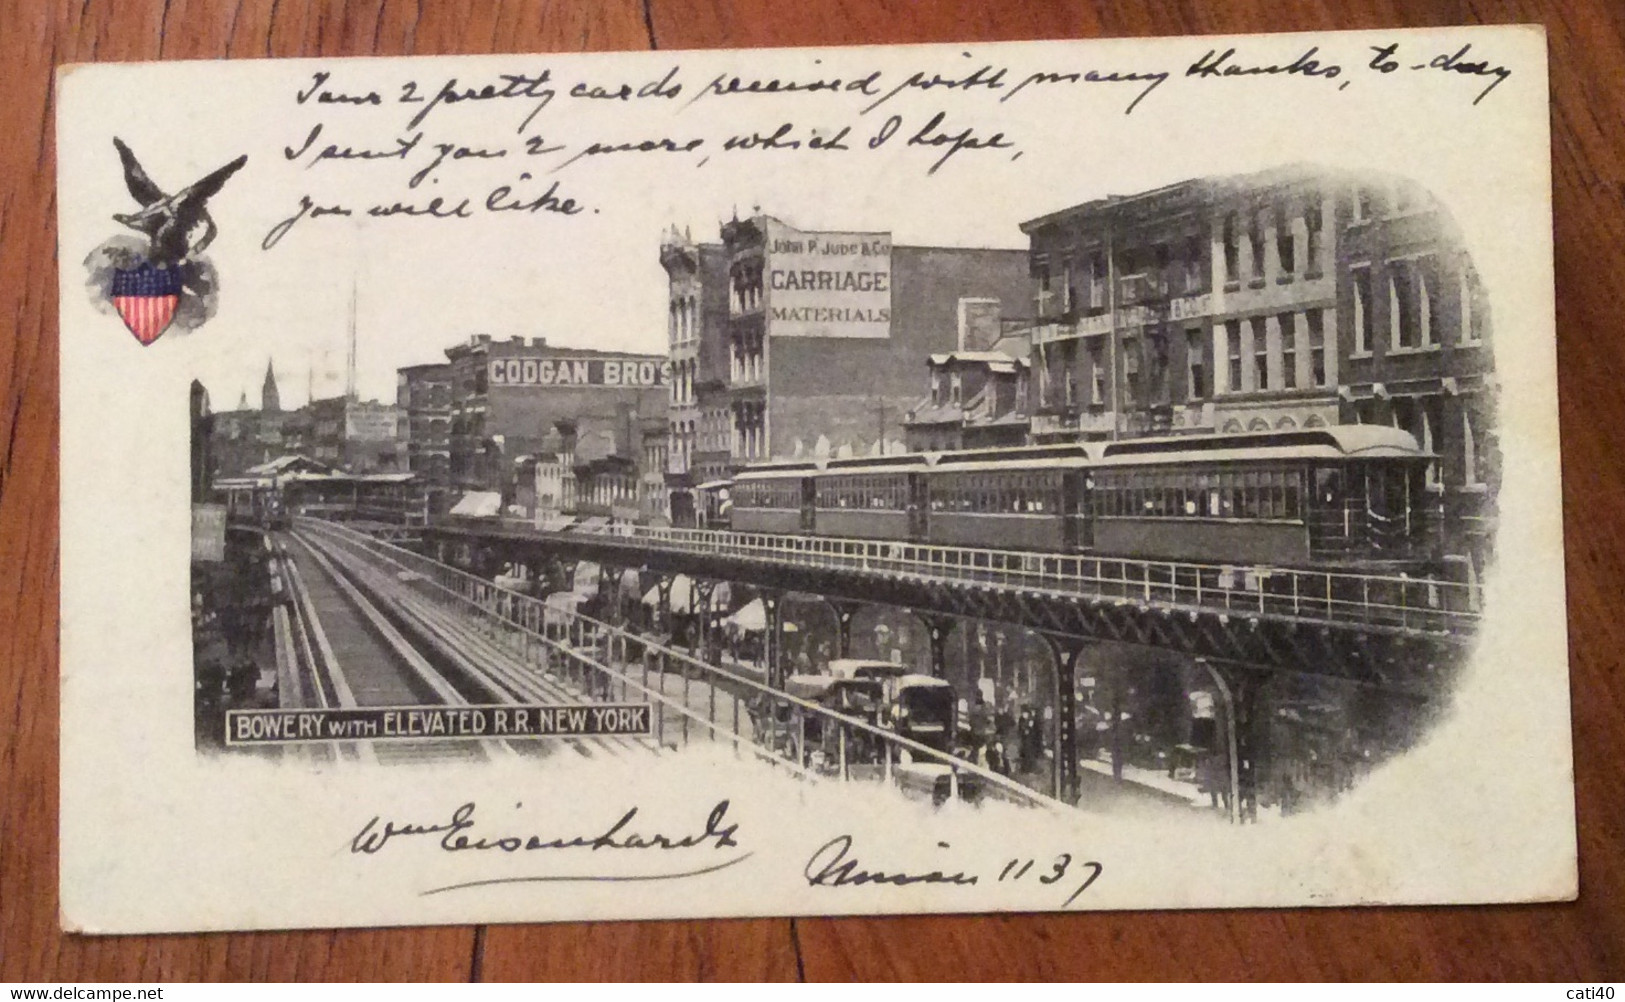 Your 2 pretty cards received with many thanks, to-day
I sent you 2 more, which I hope,
you will like.
John P. Jube & Co
CARRIAGE
MATERIALS
COOGAN BRO'S
& CO
BOWERY WITH ELEVATED R.R. NEW YORK
Wm Eisenhardt
Union 1137
cati40